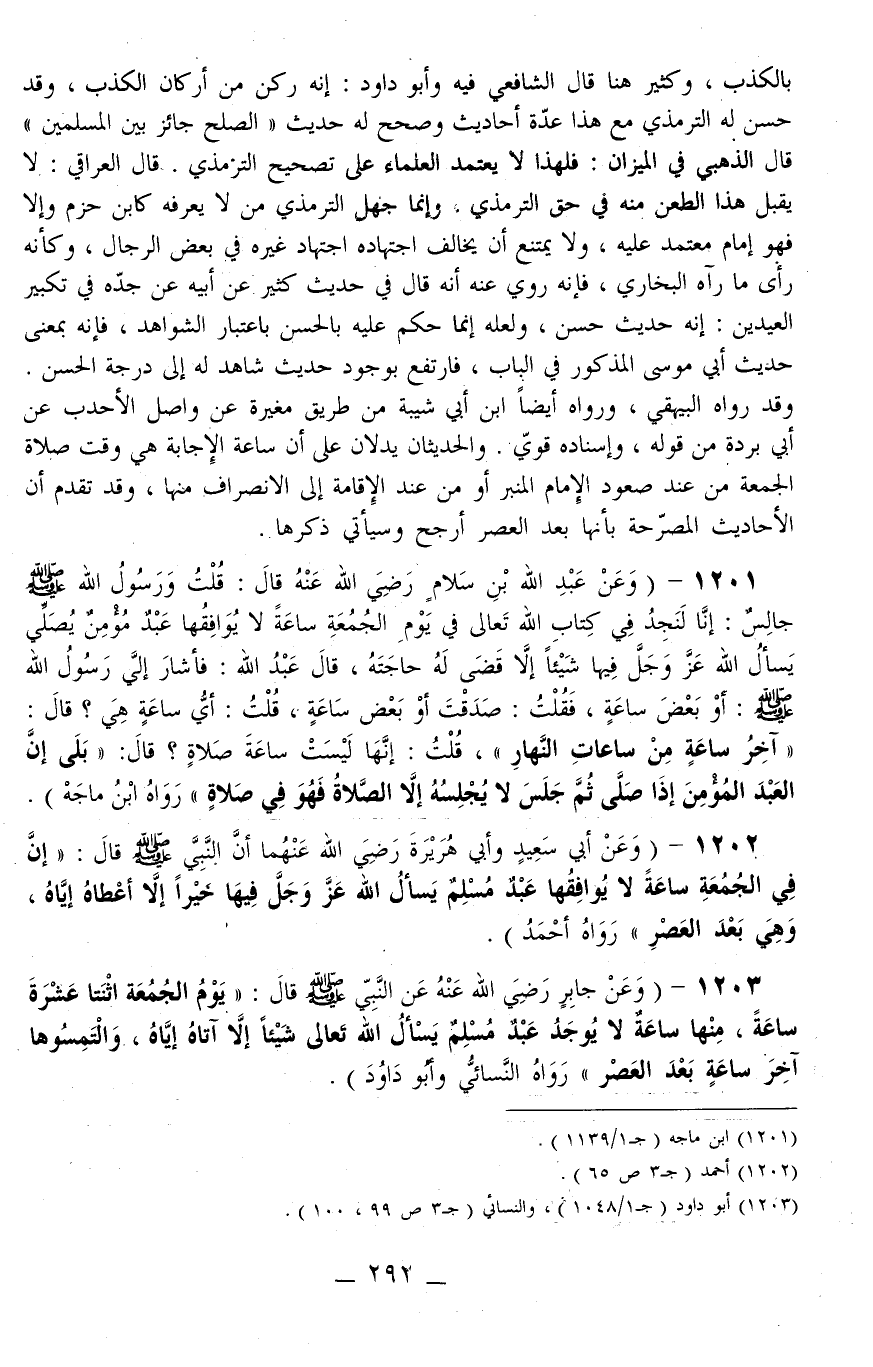 بالكذب ، وكثير هنا قال الشافعي فيه وأبو داود : إنه ركن من أركان الكذب ، وقد
حسن له الترمذي مع هذا عدّة أحاديث وصحح له حديث « الصلح جائز بين المسلمين »
قال الذهبي في الميزان : فلهذا لا يعتمد العلماء على تصحيح الترمذي . قال العراقي : لا
يقبل هذا الطعن منه في حق الترمذي ، وإنما جهل الترمذي من لا يعرفه كابن حزم وإلا
فهو إمام معتمد عليه ، ولا يمتنع أن يخالف اجتهاده اجتهاد غيره في بعض الرجال ، وكأنه
رأى ما رآه البخاري ، فإنه روي عنه أنه قال في حديث كثير عن أبيه عن جدّه في تكبير
العيدين : إنه حديث حسن ، ولعله إنما حكم عليه بالحسن باعتبار الشواهد ، فإنه بمعنى
حديث أبي موسى المذكور في الباب ، فارتفع بوجود حديث شاهد له إلى درجة الحسن .
وقد رواه البيهقي ، ورواه أيضاً ابن أبي شيبة من طريق مغيرة عن واصل الأحدب عن
أبي بردة من قوله ، وإسناده قويّ . والحديثان يدلان على أن ساعة الإجابة هي وقت صلاة
الجمعة من عند صعود الإمام المنبر أو من عند الإقامة إلى الانصراف منها ، وقد تقدم أن
الأحاديث المصرّحة بأنها بعد العصر أرجح وسيأتي ذكرها .
١٢٠١ – ( وَعَنْ عَبْدِ الله بْنِ سَلام ٍ رَضِيَ الله عَنْهُ قالَ : قُلْتُ وَرَسُولُ الله ﷺ
جالِسٌ : إنَّا لَنَجِدُ فِي كِتابِ الله تَعالى في يَوْمِ الجُمُعَةِ ساعَةً لا يُوَافِقُها عَبْدٌ مُؤْمِنٌ يُصَلِّي
يَسألُ الله عَزَّ وَجَلَّ فِيها شَيْئاً إلَّا قَضَى لَهُ حاجَتَهُ ، قالَ عَبْدُ الله : فأشارَ إليَّ رَسُولُ الله
ﷺ : أوْ بَعْضَ ساعَةٍ ، فَقُلْتُ : صَدَقْتَ أوْ بَعْضَ سَاعَةٍ ، قُلْتُ : أيُّ ساعَةٍ هِيَ ؟ قالَ :
« آخِرُ ساعَةٍ مِنْ ساعاتِ النَّهارِ » ، قُلْتُ : إنَّهَا لَيْسَتْ ساعَةَ صَلاةٍ ؟ قالَ: « بَلَى إنَّ
العَبْدَ المُؤْمِنَ إذَا صَلَّى ثُمَّ جَلَسَ لا يُجْلِسُهُ إلَّا الصَّلاةُ فَهُوَ فِي صَلاةٍ » رَوَاهُ ابْنُ ماجَهْ ) .
١٢٠٢ – ( وَعَنْ أبي سَعِيدٍ وأبي هُرَيْرَةَ رَضِيَ الله عَنْهُما أنَّ النَّبِيَّ ﷺ قالَ : « إنَّ
فِي الجُمُعَةِ ساعَةً لا يُوَافِقُها عَبْدٌ مُسْلِمٌ يَسألُ الله عَزَّ وَجَلَّ فِيهَا خَيْراً إلَّا أعْطاهُ إيَّاهُ ،
وَهِيَ بَعْدَ العَصْرِ » رَوَاهُ أحْمَدُ ) .
١٢٠٣ – ( وَعَنْ جابِرٍ رَضِيَ الله عَنْهُ عَن النَّبِيّ ﷺ قالَ : « يَوْمُ الجُمُعَة اثْنَتا عَشْرَةَ
ساعَةً ، مِنْها ساعَةٌ لا يُوجَدُ عَبْدٌ مُسْلِمٌ يَسْألُ الله تَعالى شَيْئاً إلَّا آتاهُ إيَّاهُ ، وَالْتَمِسُوها
آخِرَ ساعَةٍ بَعْدَ العَصْرِ » رَوَاهُ النَّسائيُّ وأبُو دَاوُدَ ) .
(١٢٠١) ابن ماجه ( جـ١/١١٣٩ ) .
(١٢٠٢) أحمد ( جـ٣ ص ٦٥ ) .
(١٢٠٣) أبو داود ( جـ١/١٠٤٨ ) ، والنسائي ( جـ٣ ص ٩٩ ، ١٠٠ ) .
– ٢٩٢ –